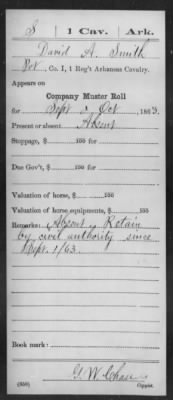 S | 1 Cav. | Ark.
David A. Smith
Pvt., Co. I, 1 Reg't Arkansas Cavalry.
Appears on
Company Muster Roll
for Sept & Oct, 1863.
Present or absent Absent
Stoppage, $ 100 for
Due Gov't, $ 100 for
Valuation of horse, $ 100
Valuation of horse equipments, $ 100
Remarks: Absent, Retain
by civil authority since
Sept. 1/63.
Book mark:
G. W. Chase
(359) Copyist.